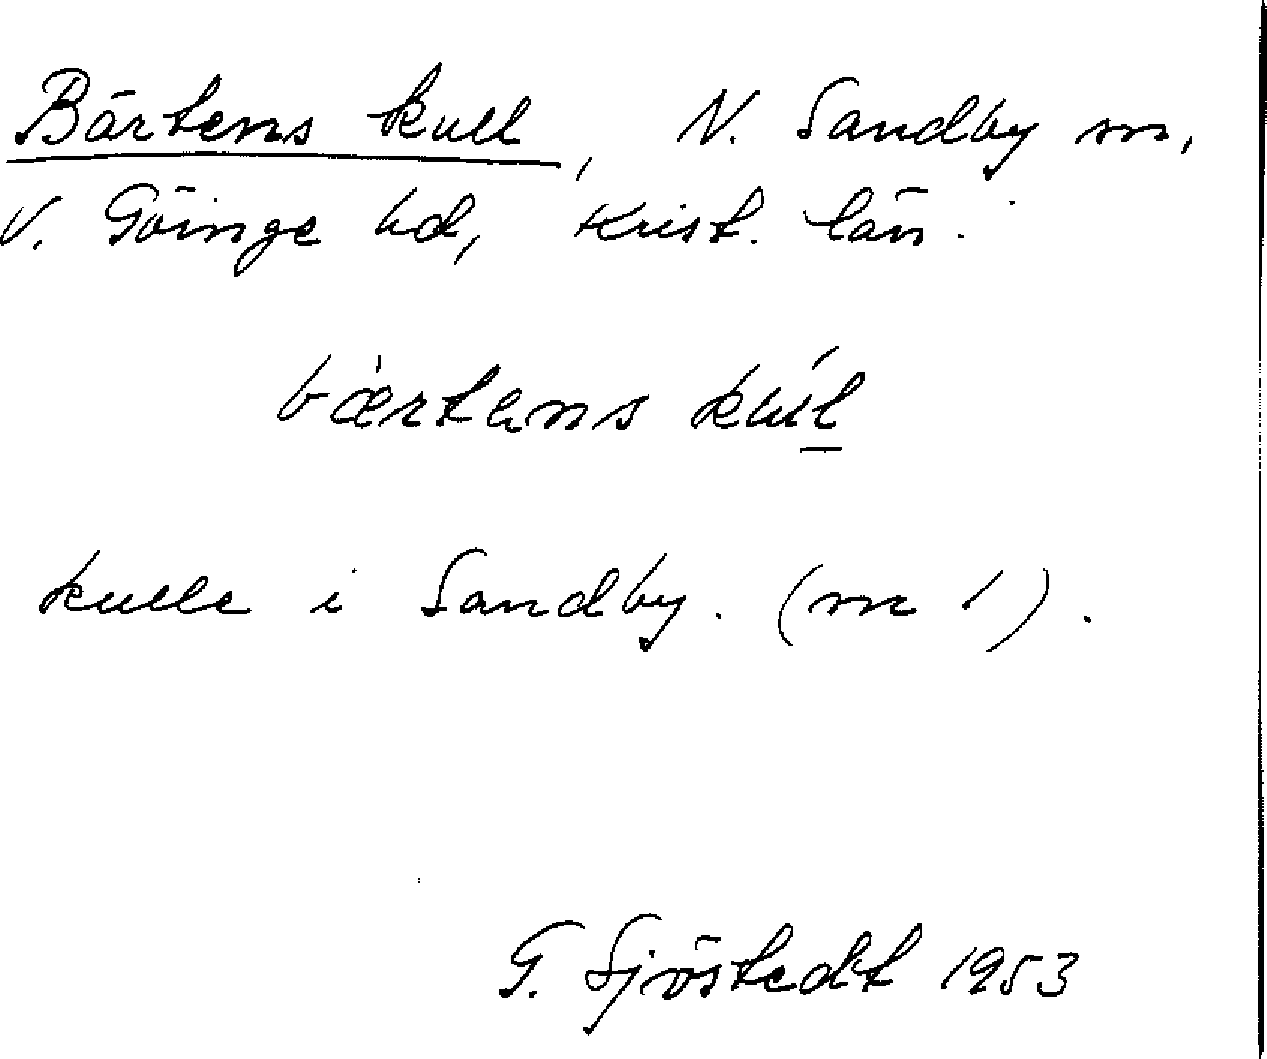 Bärtens kull, N. Sandby sn,
V. Göinge hd, Krist. län.
bærtans kul
kulle i Sandby. (nr 1).
G. Sjöstedt 1953